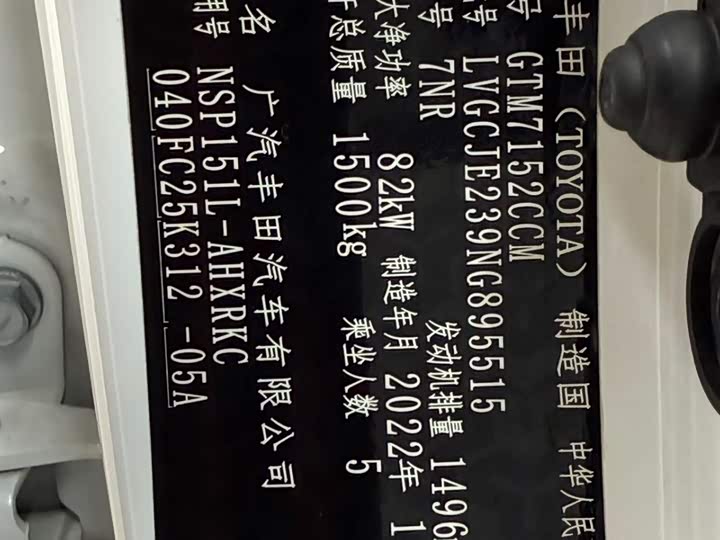 丰田 (TOYOTA) 制造国 中华人民
号 GTM7152CCM
号 LVGCJE239NG895515
号 7NR 发动机排量 1496
大净功率 82kW 制造年月 2022年 1
总质量 1500kg 乘坐人数 5
名 广汽丰田汽车有限公司
用号 NSP151L-AHXRKC
040FC25K312 -05A